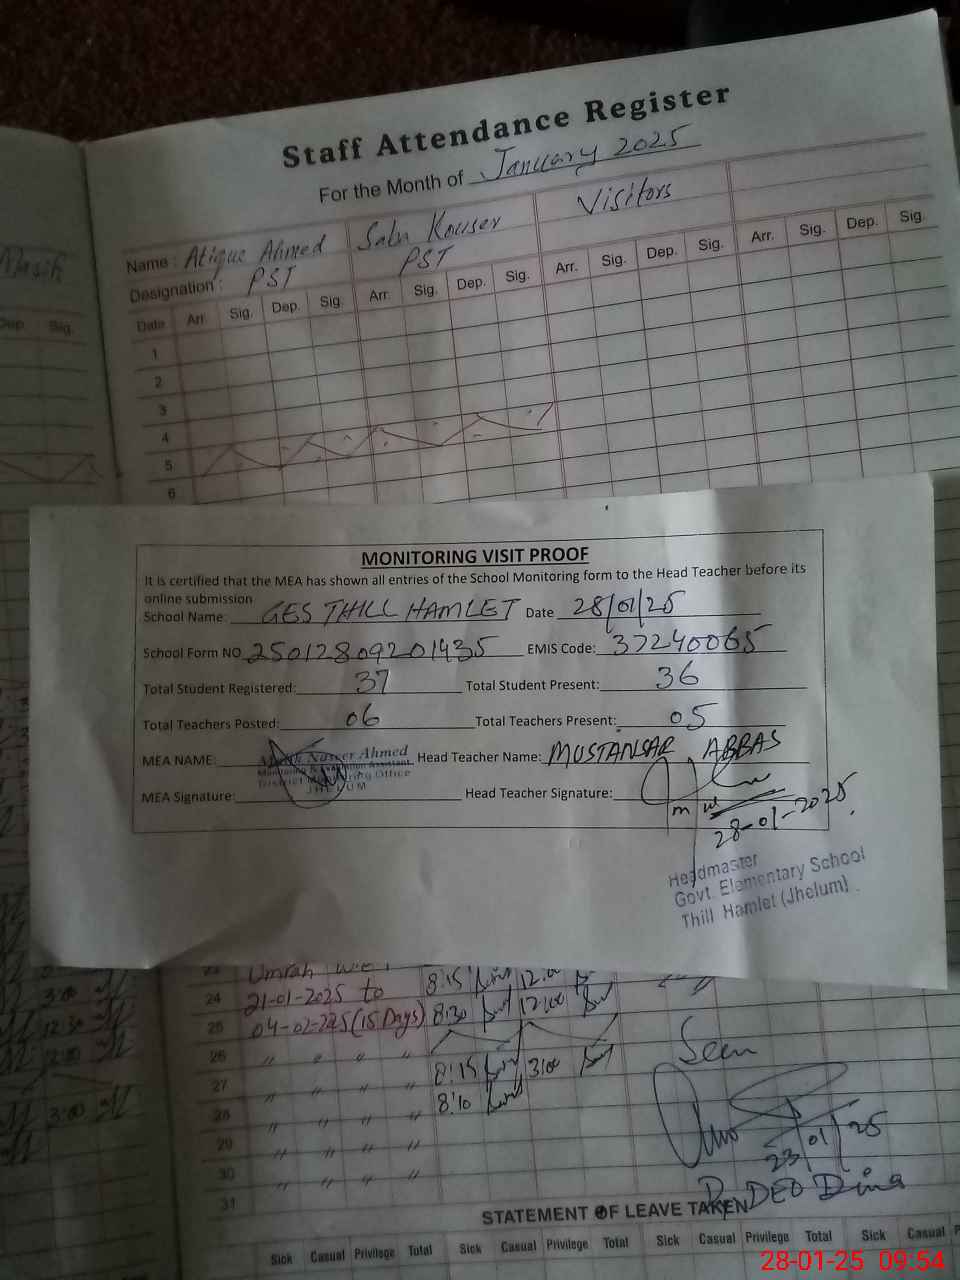 Staff Attendance Register
For the Month of January 2025
Name : Atique Ahmed Saba Kouser Visitors
Designation : PST PST
Date Arr. Sig. Dep. Sig. Arr. Sig. Dep. Sig. Arr. Sig. Dep. Sig. Arr. Sig. Dep. Sig.
Dep. Sig.
1
2
3
4
5
6
MONITORING VISIT PROOF
It is certified that the MEA has shown all entries of the School Monitoring form to the Head Teacher before its
online submission
School Name: GES THILL HAMLET Date 28/01/25
School Form NO 25012809201435 EMIS Code: 37240065
Total Student Registered: 37 Total Student Present: 36
Total Teachers Posted: 06 Total Teachers Present: 05
MEA NAME: Naseer Ahmed Head Teacher Name: MUSTANSAR ABBAS
Monitoring & Evaluation Assistant
District Monitoring Office
JHELUM
MEA Signature: Head Teacher Signature:
28-01-2025
Headmaster
Govt. Elementary School
Thill Hamlet (Jhelum)
23 Umrah 8:15 12:00
24 21-01-2025 to 8:30 12:00
25 04-02-225 (15 Days)
26 " " " "
27 " " " " 8:15 3:00
28 " " " " 8:10
29 " " " "
30 " " " "
31 " " " "
3:00
12:30
12:00
3:00
Seen
23/01/25
Dy. DEO Dina
STATEMENT OF LEAVE TAKEN
Sick Casual Privilege Total Sick Casual Privilege Total Sick Casual Privilege Total Sick Casual
28-01-25 09:54